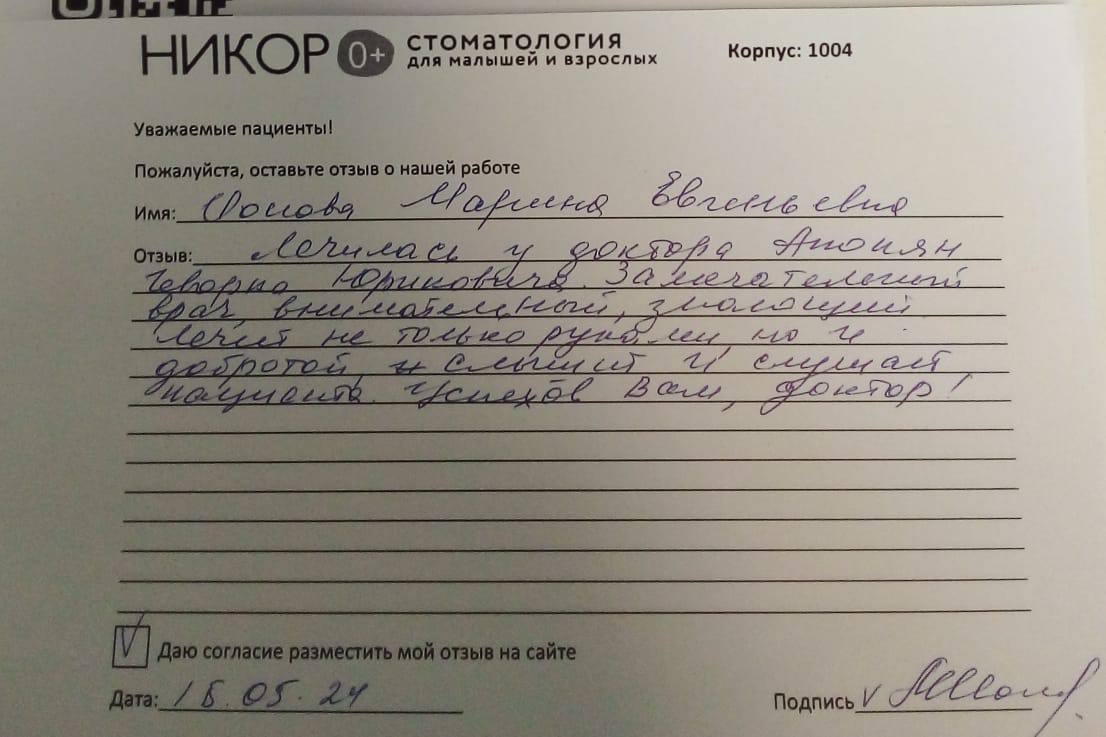 НИКОР 0+ СТОМАТОЛОГИЯ
для малышей и взрослых
Корпус: 1004
Уважаемые пациенты!
Пожалуйста, оставьте отзыв о нашей работе
Имя: Марина Евгеньевна
Отзыв: Лечилась у доктора Апоян
Геворка Юриковича. Замечательный
врач, внимательный, знающий.
Лечит не только руками, но и
добротой, и слышит и слушает
пациента. Успехов Вам, доктор!
V Даю согласие разместить мой отзыв на сайте
Дата: 05.24
Подпись V